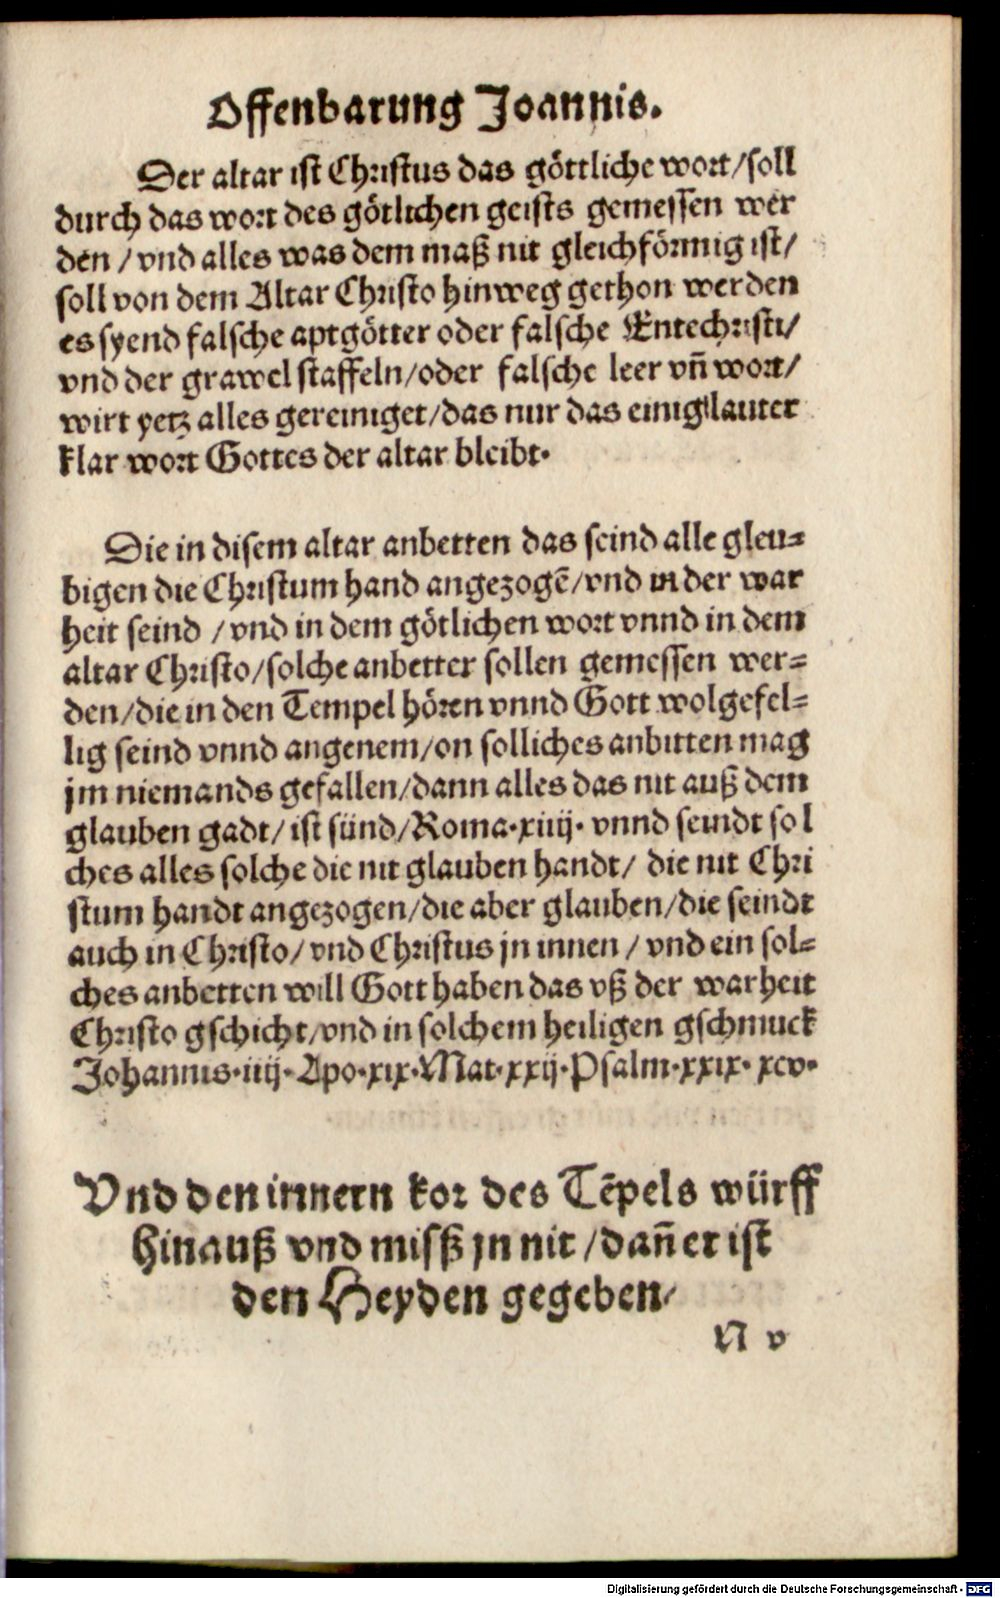 Offenbarung Joannis.
Der altar ist Christus das göttliche wort/soll
durch das wort des götlichen geists gemessen wer
den / vnd alles was dem maß nit gleichförmig ist/
soll von dem Altar Christo hinweg gethon werden
es syend falsche aptgötter oder falsche Entechristi/
vnd der grawel staffeln/oder falsche leer vn̄ wort/
wirt yetz alles gereiniget/das nur das einig lauter
klar wort Gottes der altar bleibt.
Die in disem altar anbetten das seind alle gleu-
bigen die Christum hand angezogē/vnd in der war
heit seind / vnd in dem götlichen wort vnnd in dem
altar Christo/solche anbetter sollen gemessen wer-
den/die in den Tempel hören vnnd Gott wolgefel-
lig seind vnnd angenem/on solliches anbitten mag
jm niemands gefallen/dann alles das nit auß dem
glauben gadt/ist sünd/Roma.xiiij. vnnd seindt sol
ches alles solche die nit glauben handt/ die nit Chri
stum handt angezogen/die aber glauben/die seindt
auch in Christo/vnd Christus jn innen / vnd ein sol-
ches anbetten will Gott haben das vß der warheit
Christo gschicht/vnd in solchem heiligen gschmuck
Johannis.iiij.Apo.xix.Mat.xxij.Psalm.xxix. xcv.
Vnd den innern kor des Tēpels würff
hinauß vnd misß jn nit /dan̄ er ist
den Heyden gegeben/
N v
Digitalisierung gefördert durch die Deutsche Forschungsgemeinschaft - DFG